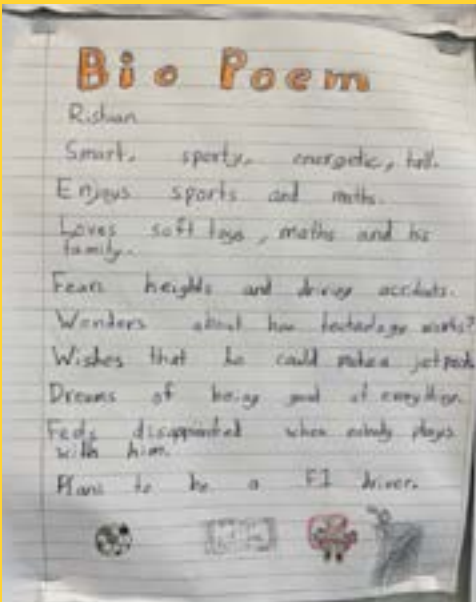 Bio Poem
Rishan
Smart, sporty, energetic, tall.
Enjoys sports and maths.
Loves soft toys, maths and his
family.
Fears heights and driving accidents.
Wonders about how technology works?
Wishes that he could make a jetpack.
Dreams of being good at everything.
Feels disappointed when nobody plays
with him.
Plans to be a F1 driver.